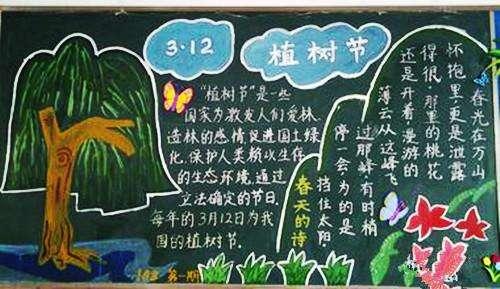 3·12
植树节
"植树节"是一些
国家为激发人们爱林
造林的感情,促进国土绿
化,保护人类赖以生存
的生态环境,通过
立法确定的节日,
每年的3月12日为我
国的植树节.
春天的诗
春光在万山
怀抱里,更是泄露
得很,那里的桃花
还是开着,漫游的
薄云从这峰飞
过那峰有时稍
停一会,为的是
挡住太阳
第一期